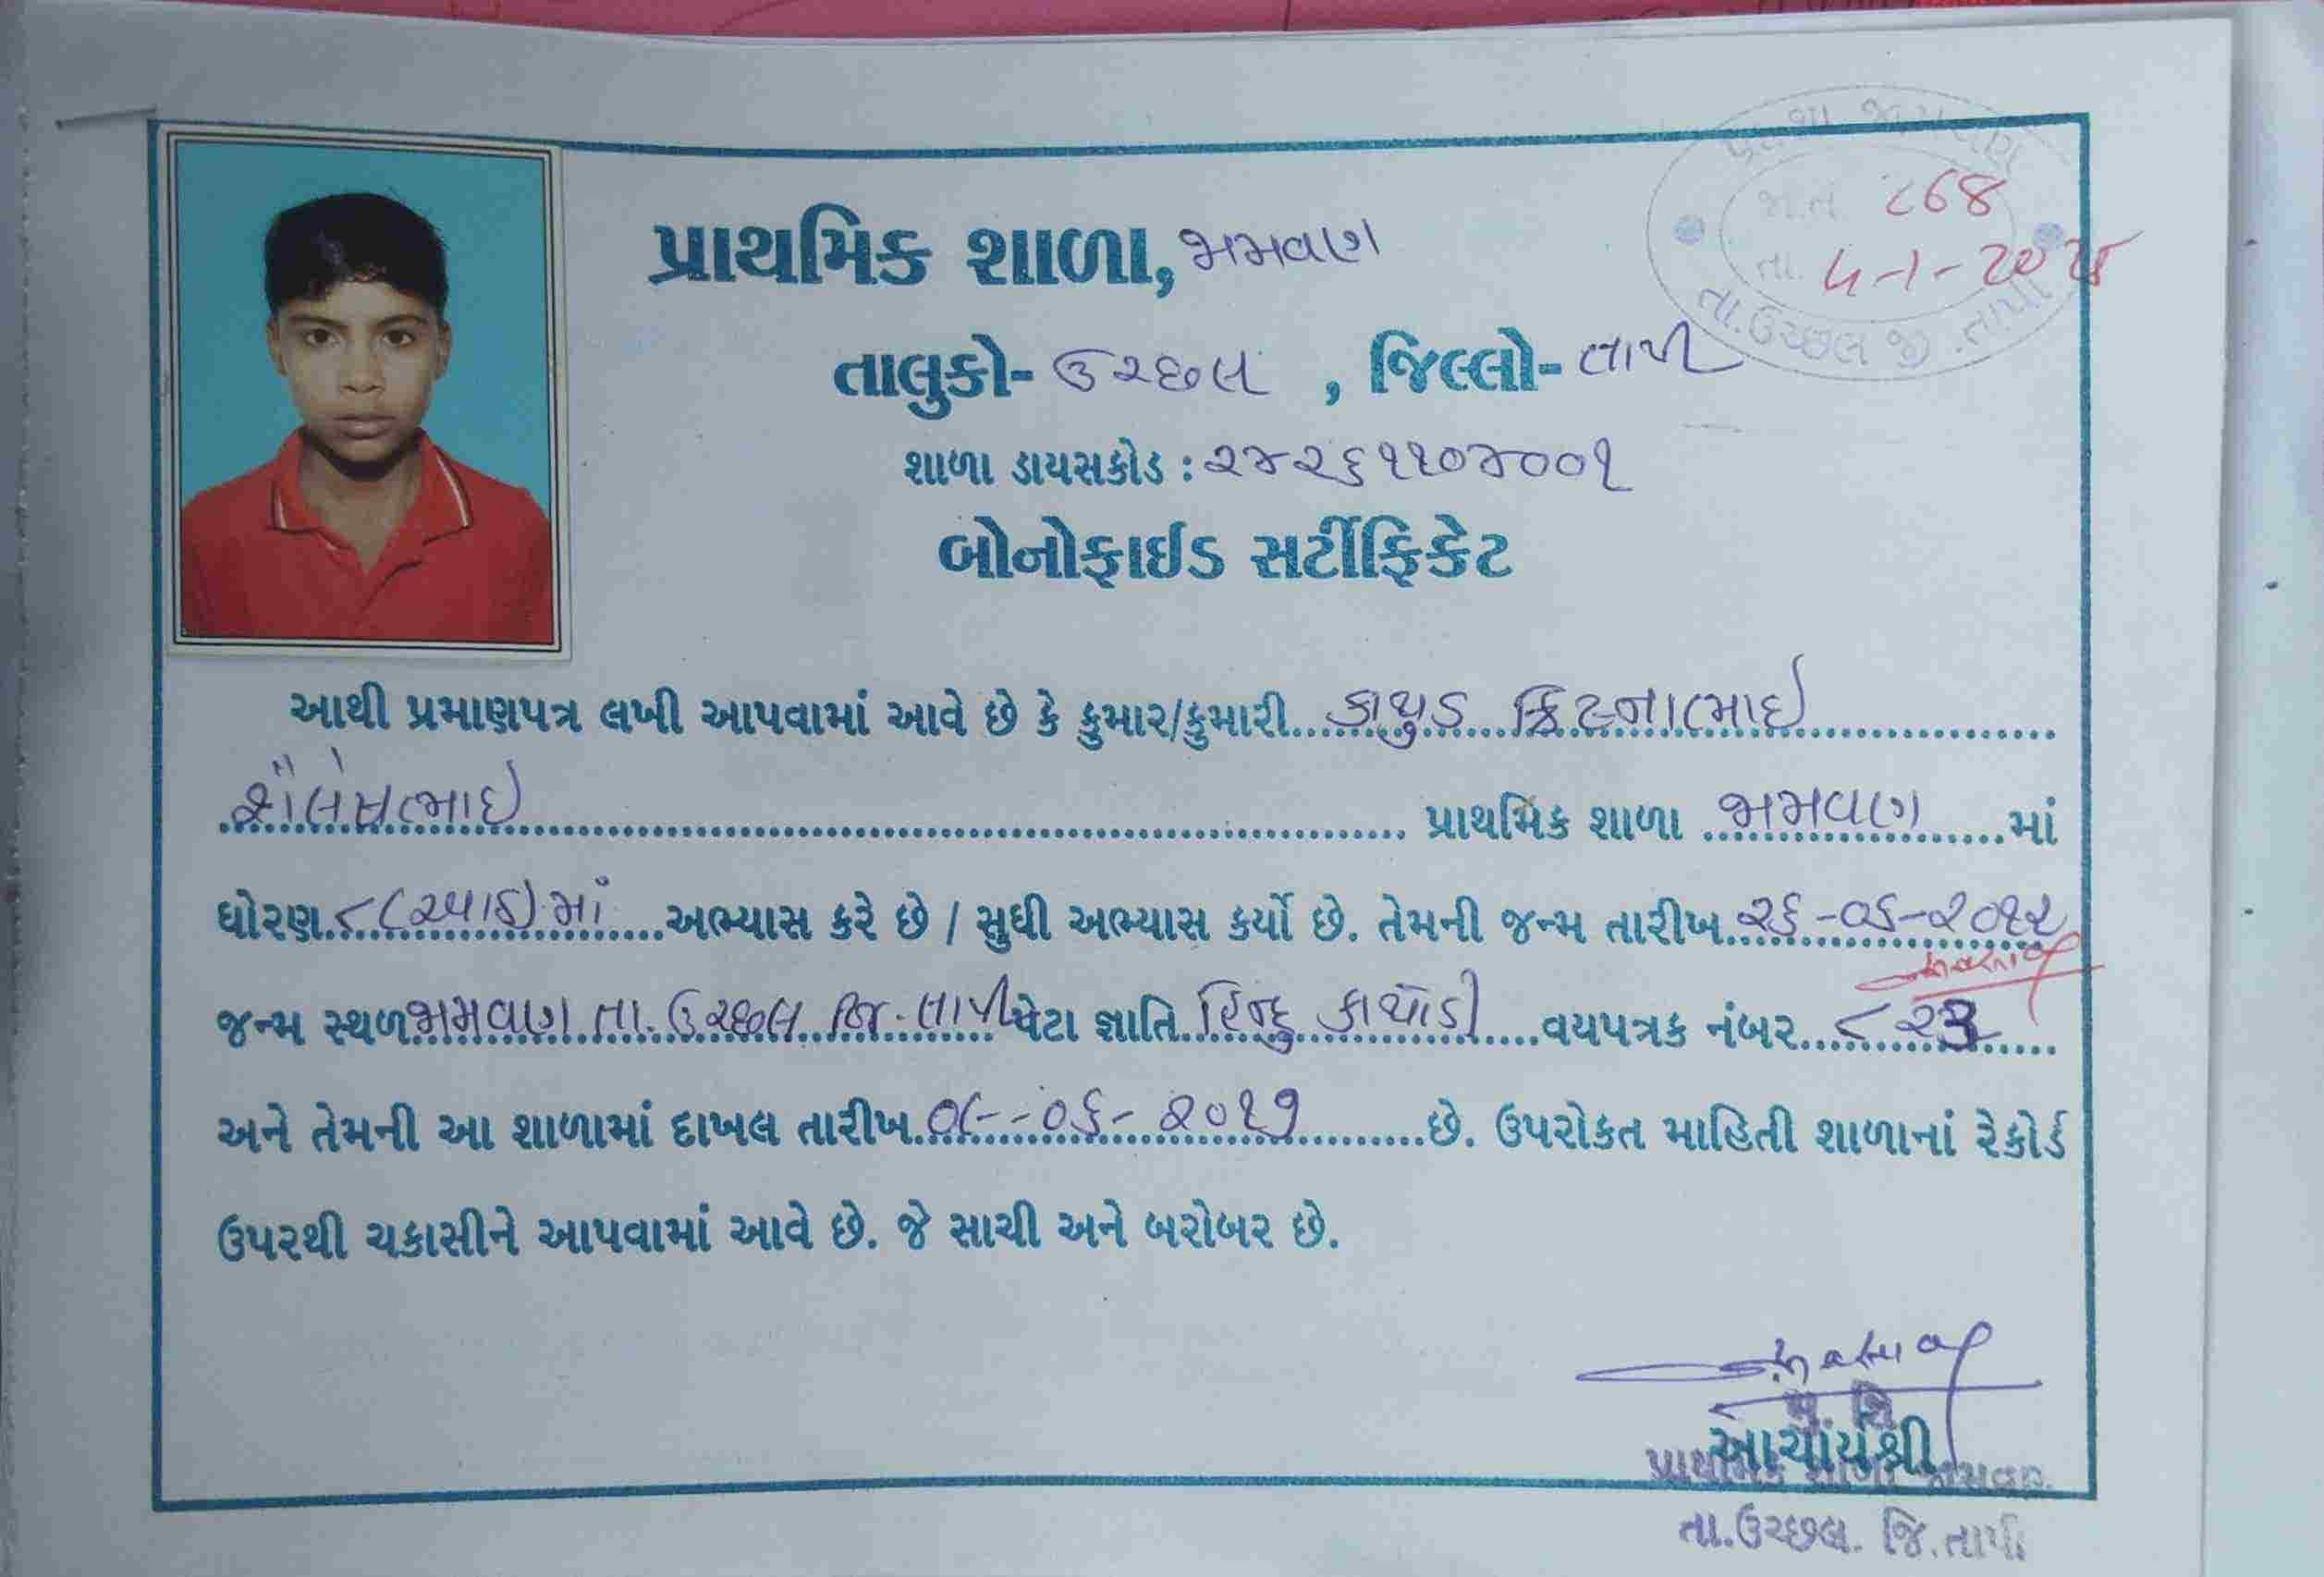 પ્રાથમિક શાળા, જામવણ
તાલુકો- ઉચ્છલ , જિલ્લો- તાપી
જા.નં ૮૬૪
તા. ૫-૧-૨૦૨૫
તા.ઉચ્છલ જી.તાપી
શાળા ડાયસકોડ : ૨૪૨૬૧૧૦૪૦૦૧
બોનોફાઈડ સર્ટીફિકેટ
આથી પ્રમાણપત્ર લખી આપવામાં આવે છે કે કુમાર/કુમારી કાથુડ ક્રિષ્નાભાઈ
શૈલેષભાઈ પ્રાથમિક શાળા જામવણ માં
ધોરણ ૮ (આઠ) માં અભ્યાસ કરે છે / સુધી અભ્યાસ કર્યો છે. તેમની જન્મ તારીખ ૨૬-૦૬-૨૦૧૨
જન્મ સ્થળ જામવણ તા. ઉચ્છલ જિ. તાપી પેટા જ્ઞાતિ હિન્દુ કાથોડી વયપત્રક નંબર ૮૨૩
અને તેમની આ શાળામાં દાખલ તારીખ ૦૮-૦૬-૨૦૧૭ છે. ઉપરોક્ત માહિતી શાળાનાં રેકોર્ડ
ઉપરથી ચકાસીને આપવામાં આવે છે. જે સાચી અને બરોબર છે.
મુ. શિ
આચાર્યશ્રી
પ્રાથમિક શાળા જામવણ
તા.ઉચ્છલ. જિ.તાપી